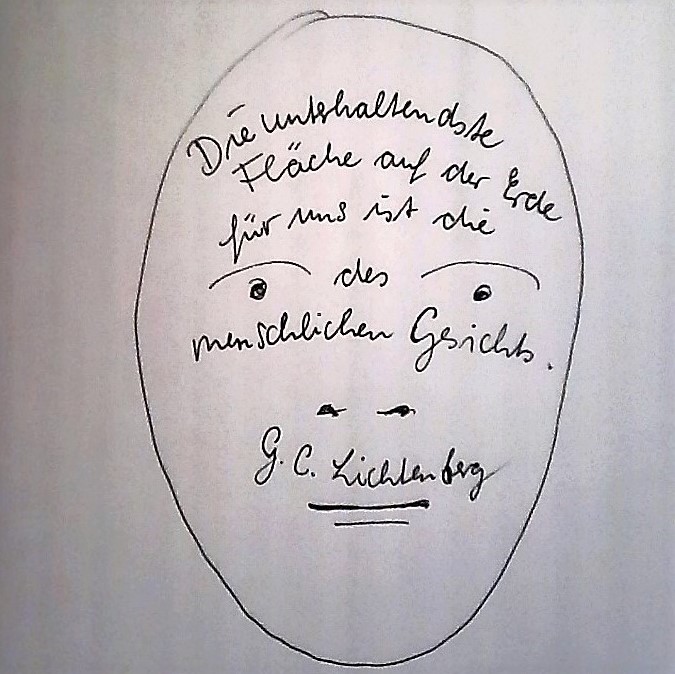 Die unterhaltendste
Fläche auf der Erde
für uns ist die
des
menschlichen Gesichts.
G. C. Lichtenberg